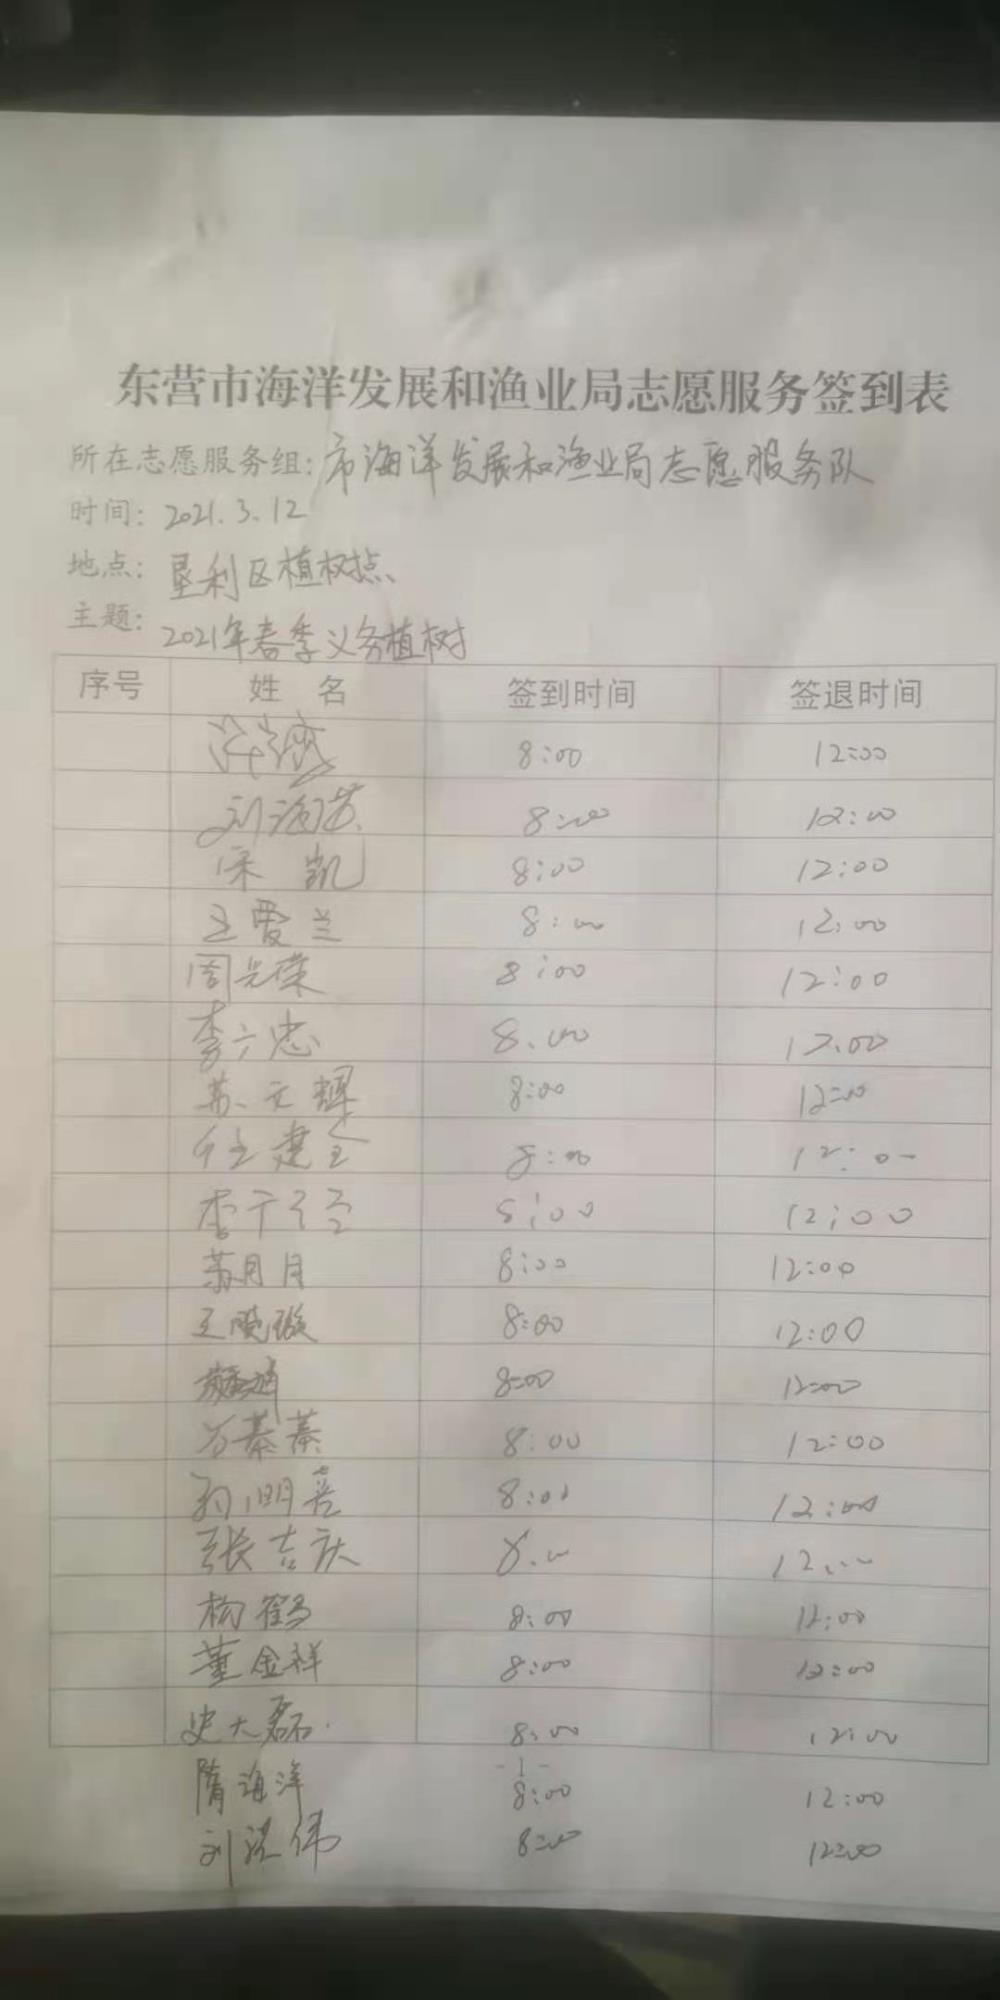 东营市海洋发展和渔业局志愿服务签到表
所在志愿服务组: 市海洋发展和渔业局志愿服务队
时间: 2021.3.12
地点: 垦利区植树点
主题: 2021年春季义务植树
序号 姓 名 签到时间 签退时间
8:00 12:00
刘海英 8:00 12:00
宋 凯 8:00 12:00
王爱兰 8:00 12:00
周光荣 8:00 12:00
李六忠 8.00 12.00
苏文辉 8:00 12:00
任建全 8:00 12:00
李于 8:00 12:00
苏月月 8:00 12:00
王晓璇 8:00 12:00
8:00 12:00
万蓁蓁 8:00 12:00
孙明喜 8:00 12:00
张吉庆 8.00 12.00
杨鹤 8:00 12:00
董金祥 8:00 12:00
史大磊 8:00 12:00
-1-
隋海洋 8:00 12:00
刘洪伟 8:00 12:00